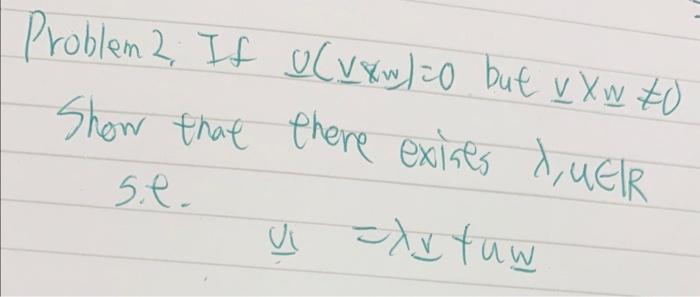 Problem 2. If u(v×w)=0 but v×w≠0
Show that there exises λ,u∈ℝ
s.t.
u =λv+uw